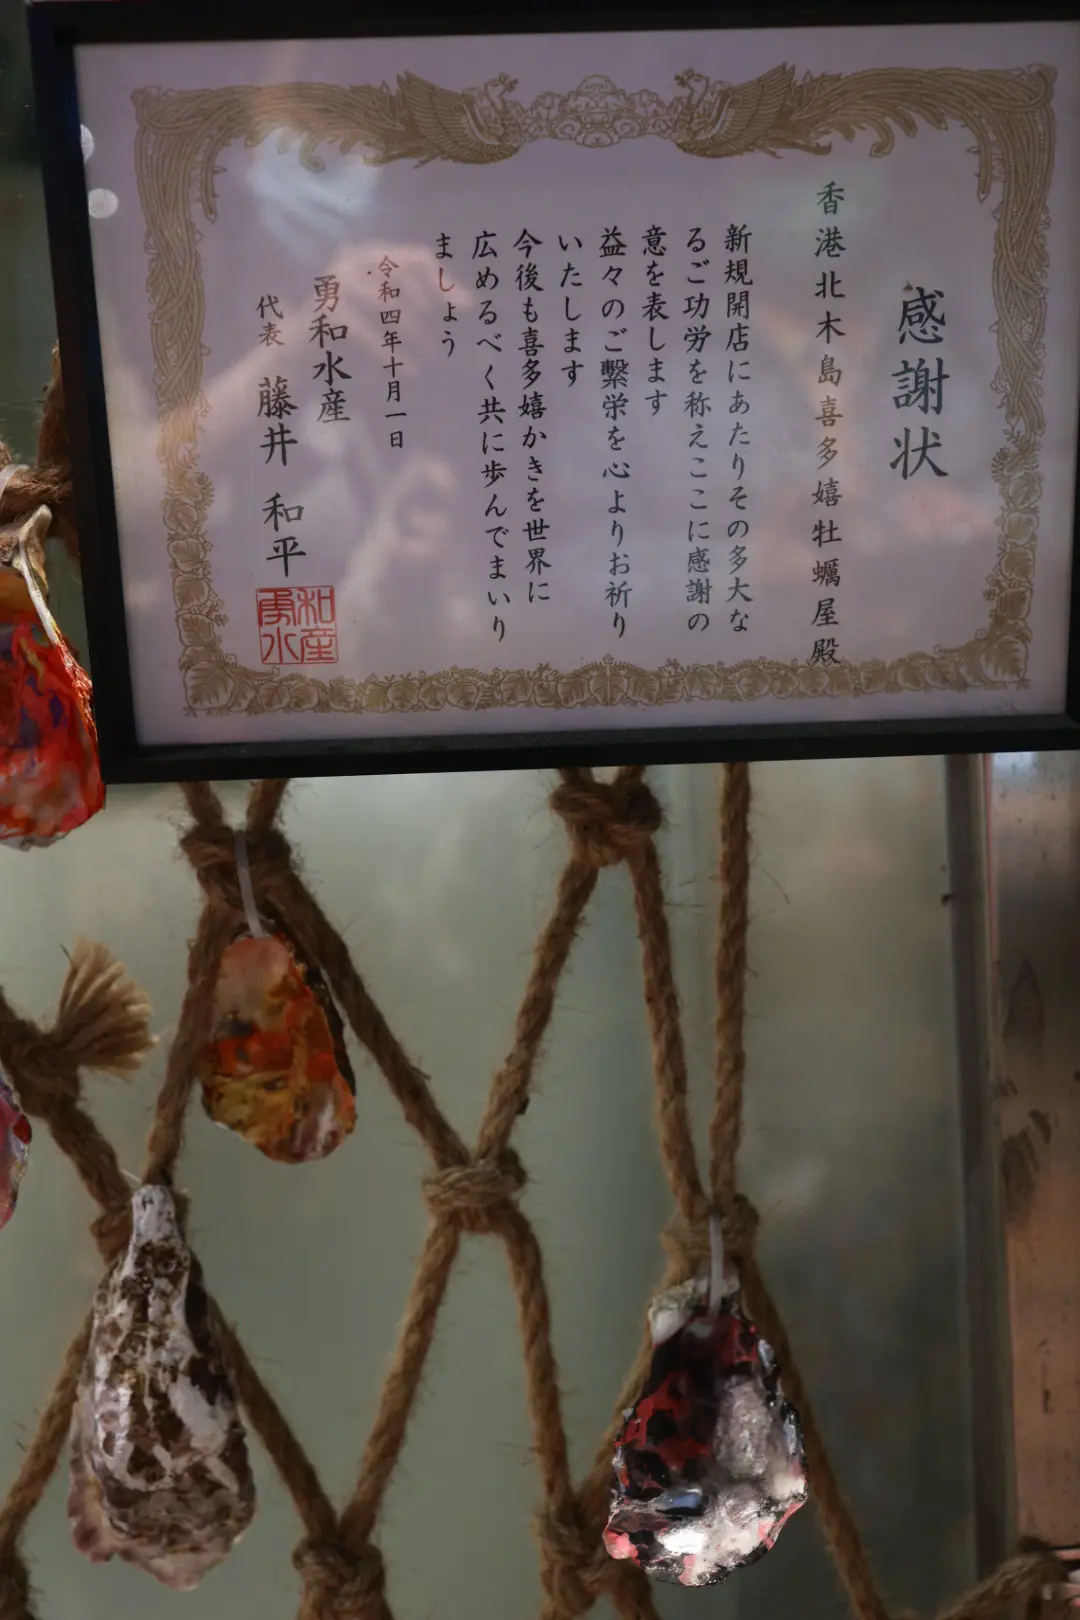 感謝状
香港北木島喜多嬉牡蠣屋殿
新規開店にあたりその多大な
るご功労を称えここに感謝の
意を表します
益々のご繫栄を心よりお祈り
いたします
今後も喜多嬉かきを世界に
広めるべく共に歩んでまいり
ましょう
令和四年十月一日
勇和水産
代表 藤井 和平
和産
勇水